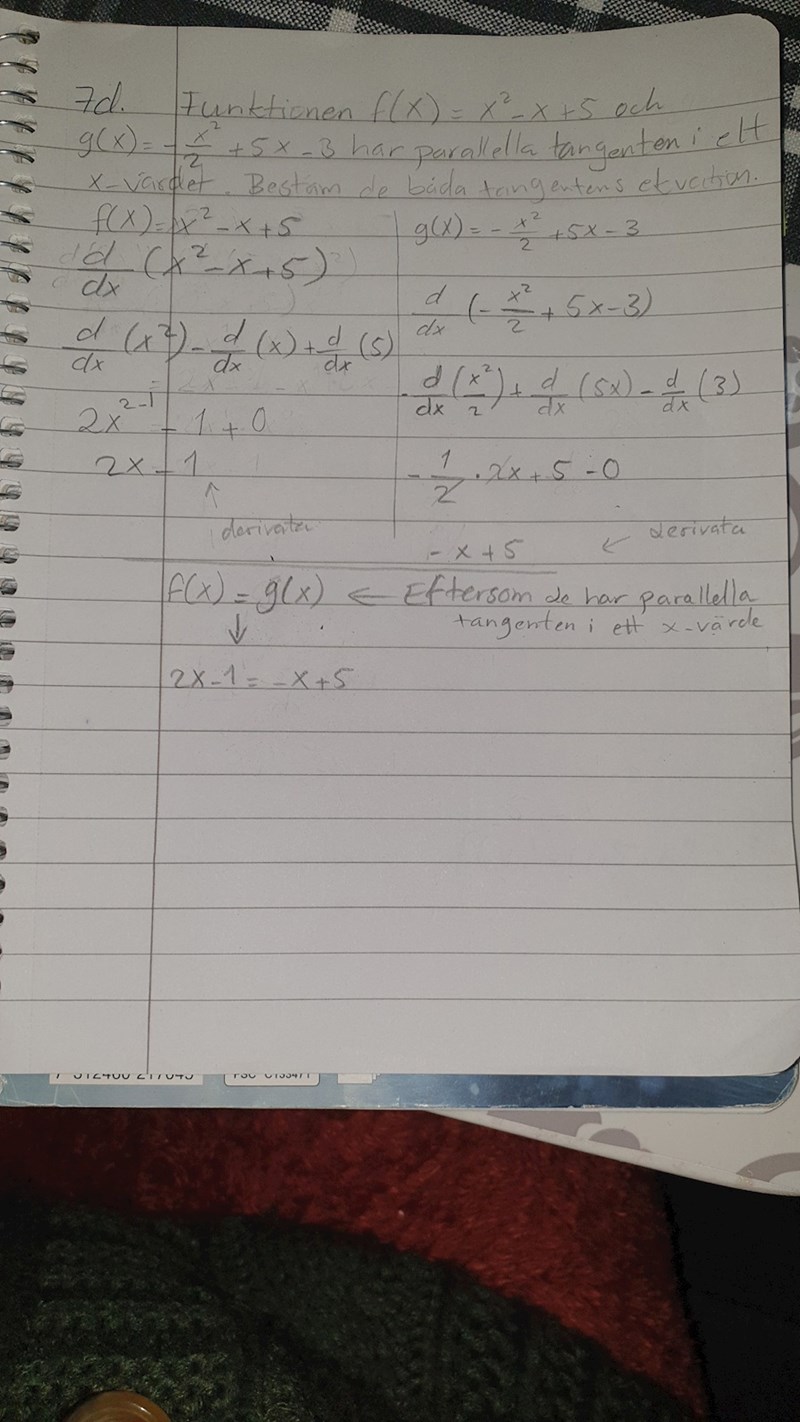 7d. Funktionen f(x) = x² - x + 5 och
g(x) = - x²/2 + 5x - 3 har parallella tangenten i ett
x-värdet. Bestäm de båda tangentens ekvation.
f(x) = x² - x + 5
d/dx (x² - x + 5)
d/dx (x²) - d/dx (x) + d/dx (5)
2x²⁻¹ - 1 + 0
2x - 1
↑
derivata
g(x) = - x²/2 + 5x - 3
d/dx (- x²/2 + 5x - 3)
- d/dx (x²/2) + d/dx (5x) - d/dx (3)
- 1/2 · 2x + 5 - 0
- x + 5 ← derivata
f(x) = g(x) ← Eftersom de har parallella
tangenten i ett x-värde
↓
2x - 1 = - x + 5
FSC C133471